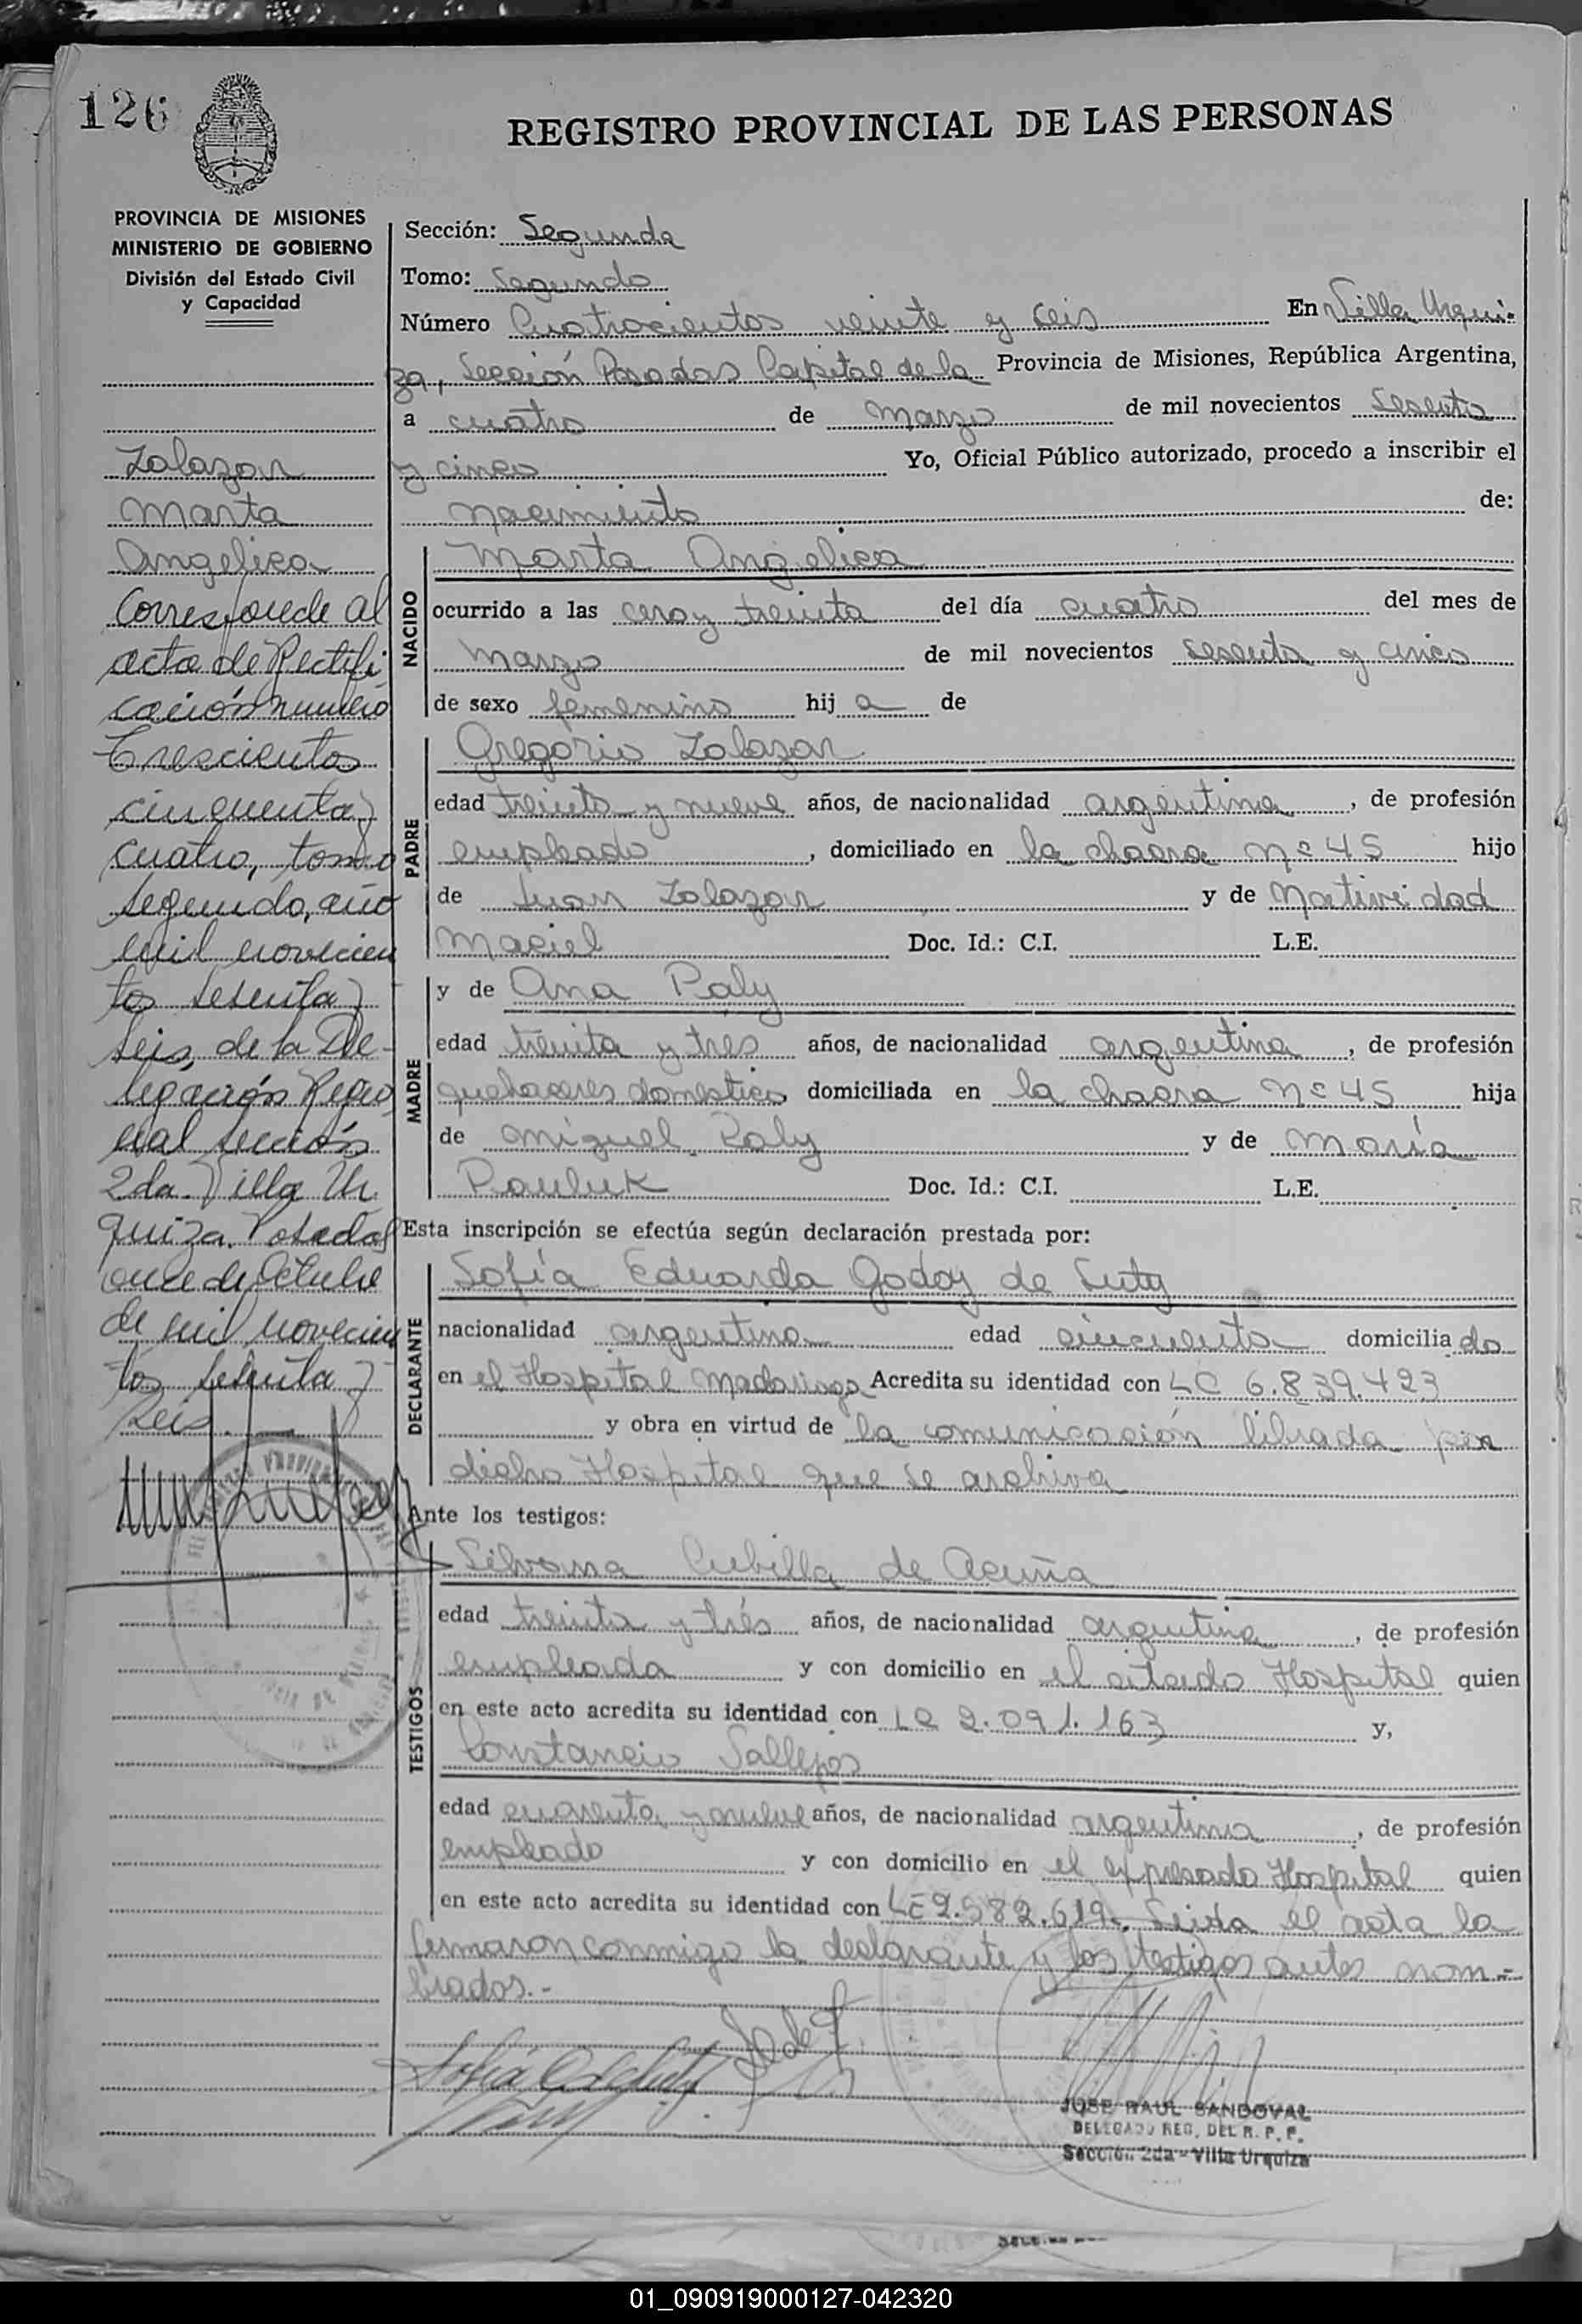 126
REGISTRO PROVINCIAL DE LAS PERSONAS
PROVINCIA DE MISIONES
MINISTERIO DE GOBIERNO
División del Estado Civil
y Capacidad
Zalazar
Marta
Angelica
Corresponde al
acta de Rectifi
cación numero
Trescientos
cincuenta y
cuatro, tomo
segundo, año
mil novecien
tos sesenta y
seis, de la De-
legación Regio
nal sección
2da. Villa Ur
quiza. Posadas
once de Octubre
de mil novecien
tos sesenta y
seis.
Sección: Segunda
Tomo: Segundo
Número Cuatrocientos veinte y seis En Villa Urqui-
za, Sección Posadas Capital de la Provincia de Misiones, República Argentina,
a cuatro de marzo de mil novecientos sesenta
y cinco Yo, Oficial Público autorizado, procedo a inscribir el
nacimiento de:
NACIDO
Marta Angelica
ocurrido a las cero y treinta del día cuatro del mes de
marzo de mil novecientos sesenta y cinco
de sexo femenino hij a de
PADRE
Gregorio Zalazar
edad treinta y nueve años, de nacionalidad argentina, de profesión
empleado, domiciliado en la chacra nº 45 hijo
de Juan Zalazar y de Natividad
Maciel Doc. Id.: C.I. L.E.
MADRE
y de Ana Paly
edad treinta y tres años, de nacionalidad argentina, de profesión
quehaceres domestico domiciliada en la chacra nº 45 hija
de Miguel Paly y de María
Pauluk Doc. Id.: C.I. L.E.
Esta inscripción se efectúa según declaración prestada por:
DECLARANTE
Sofía Eduarda Godoy de Luty
nacionalidad argentina edad cincuenta domicilia da
en el Hospital Madariaga Acredita su identidad con LC 6.839.423
y obra en virtud de la comunicación librada por
dicho Hospital que se archiva
Ante los testigos:
TESTIGOS
Silvana Cubilla de Acuña
edad treinta y trés años, de nacionalidad argentina, de profesión
empleada y con domicilio en el citado Hospital quien
en este acto acredita su identidad con LC 2.091.163 y,
Constancio Vallejos
edad cuarenta y nueve años, de nacionalidad argentina, de profesión
empleado y con domicilio en el expresado Hospital quien
en este acto acredita su identidad con LE 2.582.619. Leida el acta la
firmaron conmigo la declarante y los testigos antes nom-
brados.-
JOSE RAUL SANDOVAL
DELEGADO REG. DEL R. P. P.
Sección 2da - Villa Urquiza
01_090919000127-042320